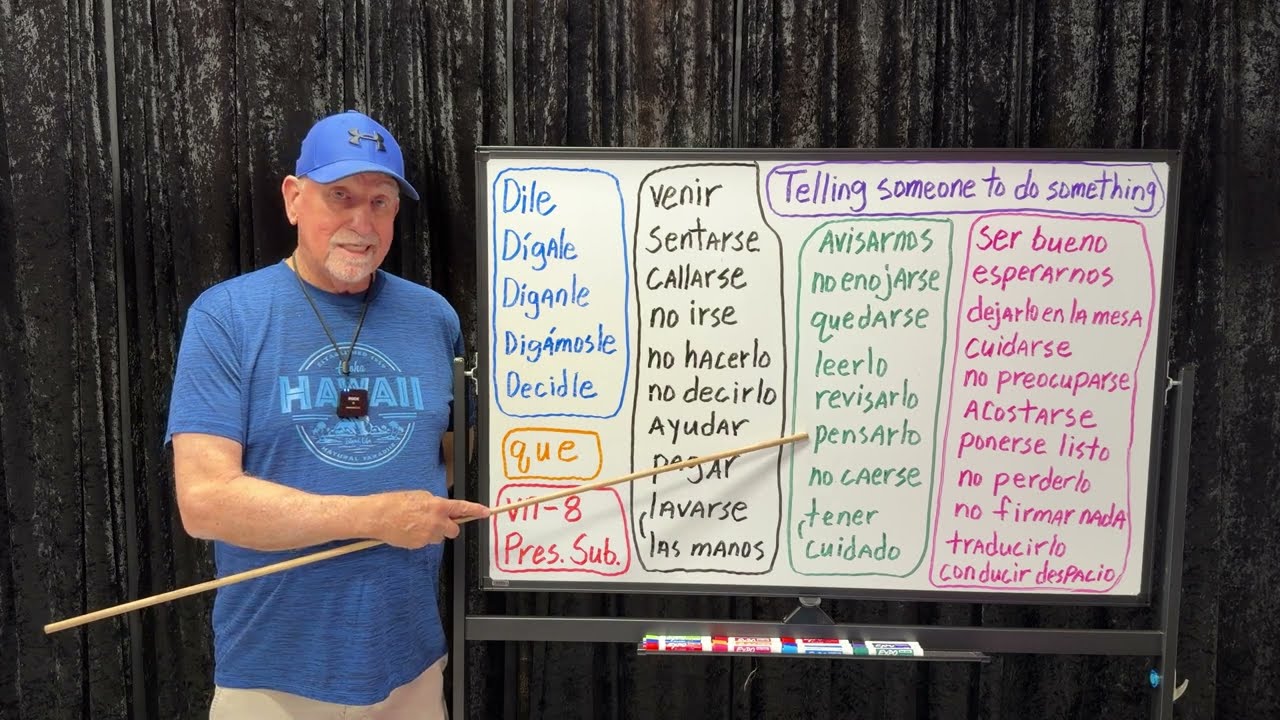 Dile
Dígale
Díganle
Digámosle
Decidle
que
VII-8
Pres. Sub.
venir
sentarse
callarse
no irse
no hacerlo
no decirlo
ayudar
pegar
lavarse
las manos
Telling someone to do something
avisarnos
no enojarse
quedarse
leerlo
revisarlo
pensarlo
no caerse
tener
cuidado
ser bueno
esperarnos
dejarlo en la mesa
cuidarse
no preocuparse
acostarse
ponerse listo
no perderlo
no firmar nada
traducirlo
conducir despacio
Aloha
HAWAII
NATURAL PARADISE